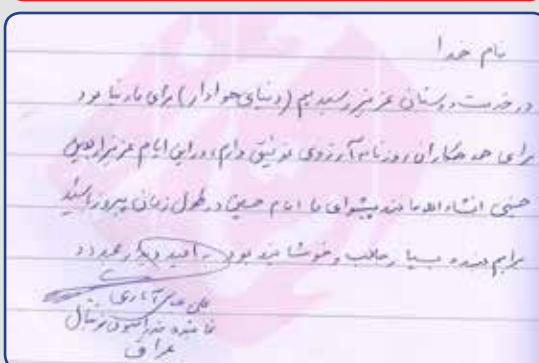 بنام خدا
در خدمت دوستان عزیز رسیدیم (دنیای هوادار) برای ما دنیا بود
برای همه همکاران روزنامه آرزوی توفیق دارم، در این ایام عزیز اربعین
حسینی انشاءاله مانند پیشوای ما امام حسین در طول زمان پیروز باشید
برایم بسیار جالب و خوشایند بود به امید دیدار مجدد
علی عباس
نماینده فدراسیون فوتبال
عراق